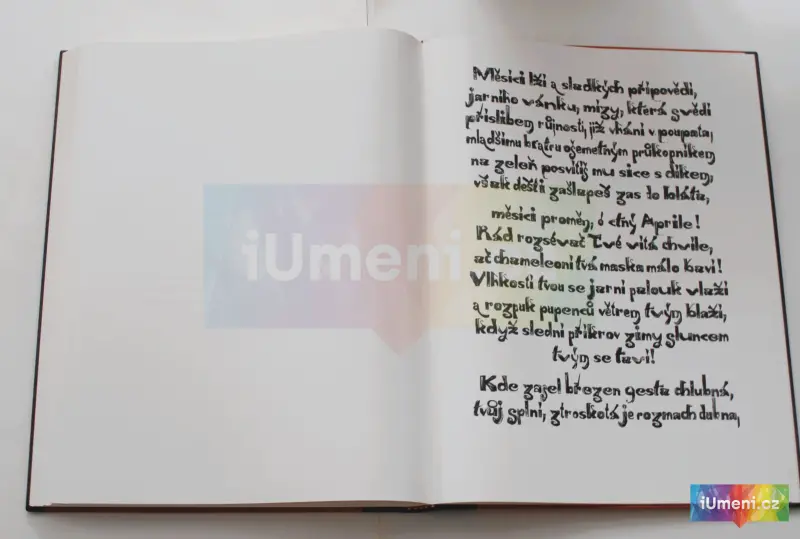 Měsíci lži a sladkých připovědí,
jarního vánku, mízy, která svědí
příslibem růjnosti, již vhání v poupata,
mladšímu bratru ošemetným průkopníkem
na zeleň posvítíš mu sice s díkem,
však dešti zašlapeš zas do bláta,
měsíci proměn, ó ctný Aprile!
Rád rozsévač Tvé vítá chvíle,
ač chameleoní tvá maska málo baví!
Vlhkostí tvou se jarní palouk vlaží
a rozpuk pupenců větrem tvým blaží,
když slední příkrov zimy sluncem
tvým se taví!
Kde zajel březen gesta chlubná,
tvůj splní, ztroskotá je rozmach dubna,
iUmeni.cz
iUmeni.cz